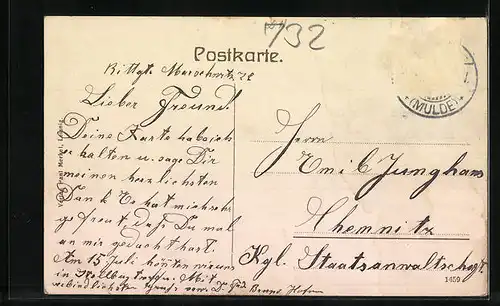 1732
Postkarte.
(MULDE)
Rittgt.
Lieber Freund!
Deine Karte hab ich
erhalten u. sage Dir
meinen herzlichsten
Dank. Es hat mich sehr
gefreut, daß Du mal
an mir gedacht hast.
Am 15 Juli könten wir uns
in
Herrn
Emil Junghans
Chemnitz
Kgl. Staatsanwaltschaft
1459